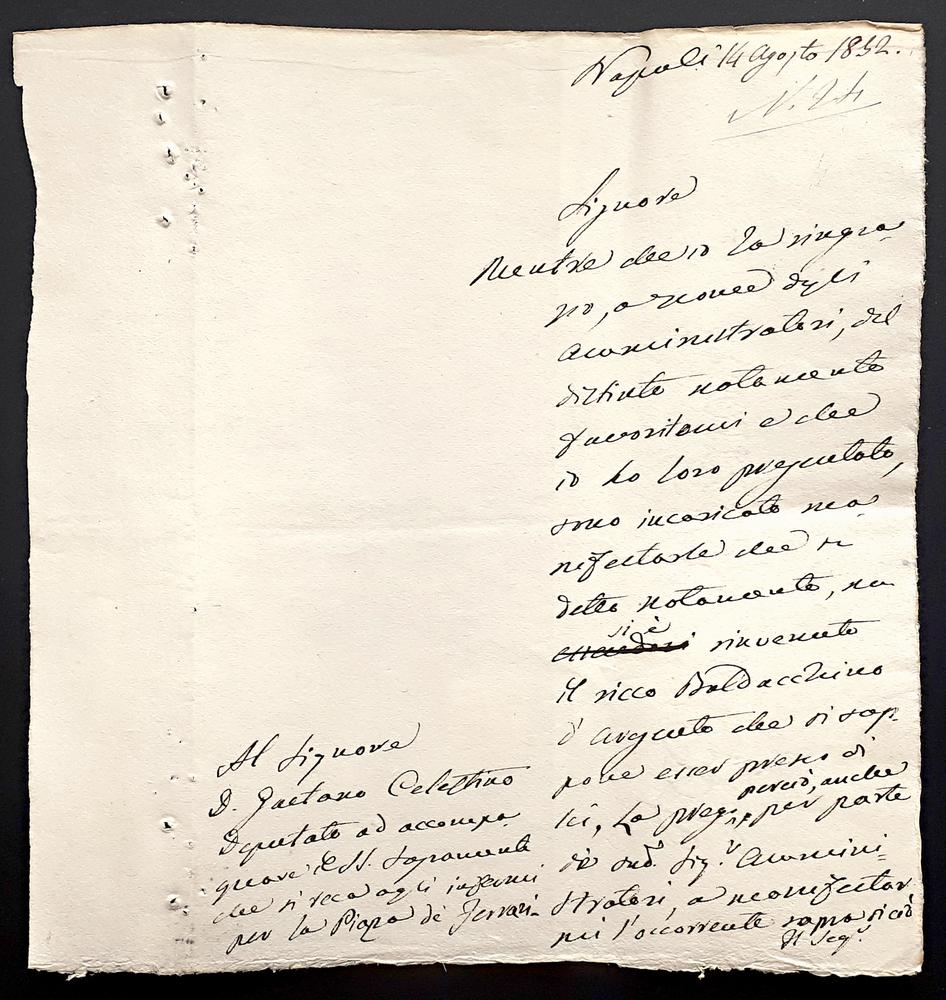 Napoli 14 Agosto 1852.
N. 24
Signore
Mentre che io La ringra-
zio, a nome degli
Amministratori, del
distinto notamento
favoritomi e che
io ho loro presentato,
sono incaricato ma-
nifestarle che in
detto notamento, non
si è
rinvenuto
il ricco Baldacchino
d'argento che si sup-
pone esser presso di
Lei, La prego, perciò, anche
per parte
de' sud.i Sig.i Ammini-
stratori, a manifestar
mi l'occorrente sopra ciò
Il Seg.o
Al Signore
D. Gaetano Celestino
Deputato ad accompa-
gnare il SS. Sagramento
che si reca agli infermi
per la Piazza de' Ferrari-